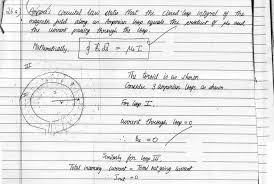 Ampere's Circuital law states that the closed loop integral of the
magnetic field along an Amperian loop equals the product of μ₀ and
the current passing through the loop.
Mathematically, ∮ B⃗.dl⃗ = μ₀I
III
The toroid is as shown
Consider 3 amperian loops as shown
For loop II,
current through loop = 0
∴ B₂ = 0
Similarly for loop III,
Total incoming current = Total outgoing current
= 0